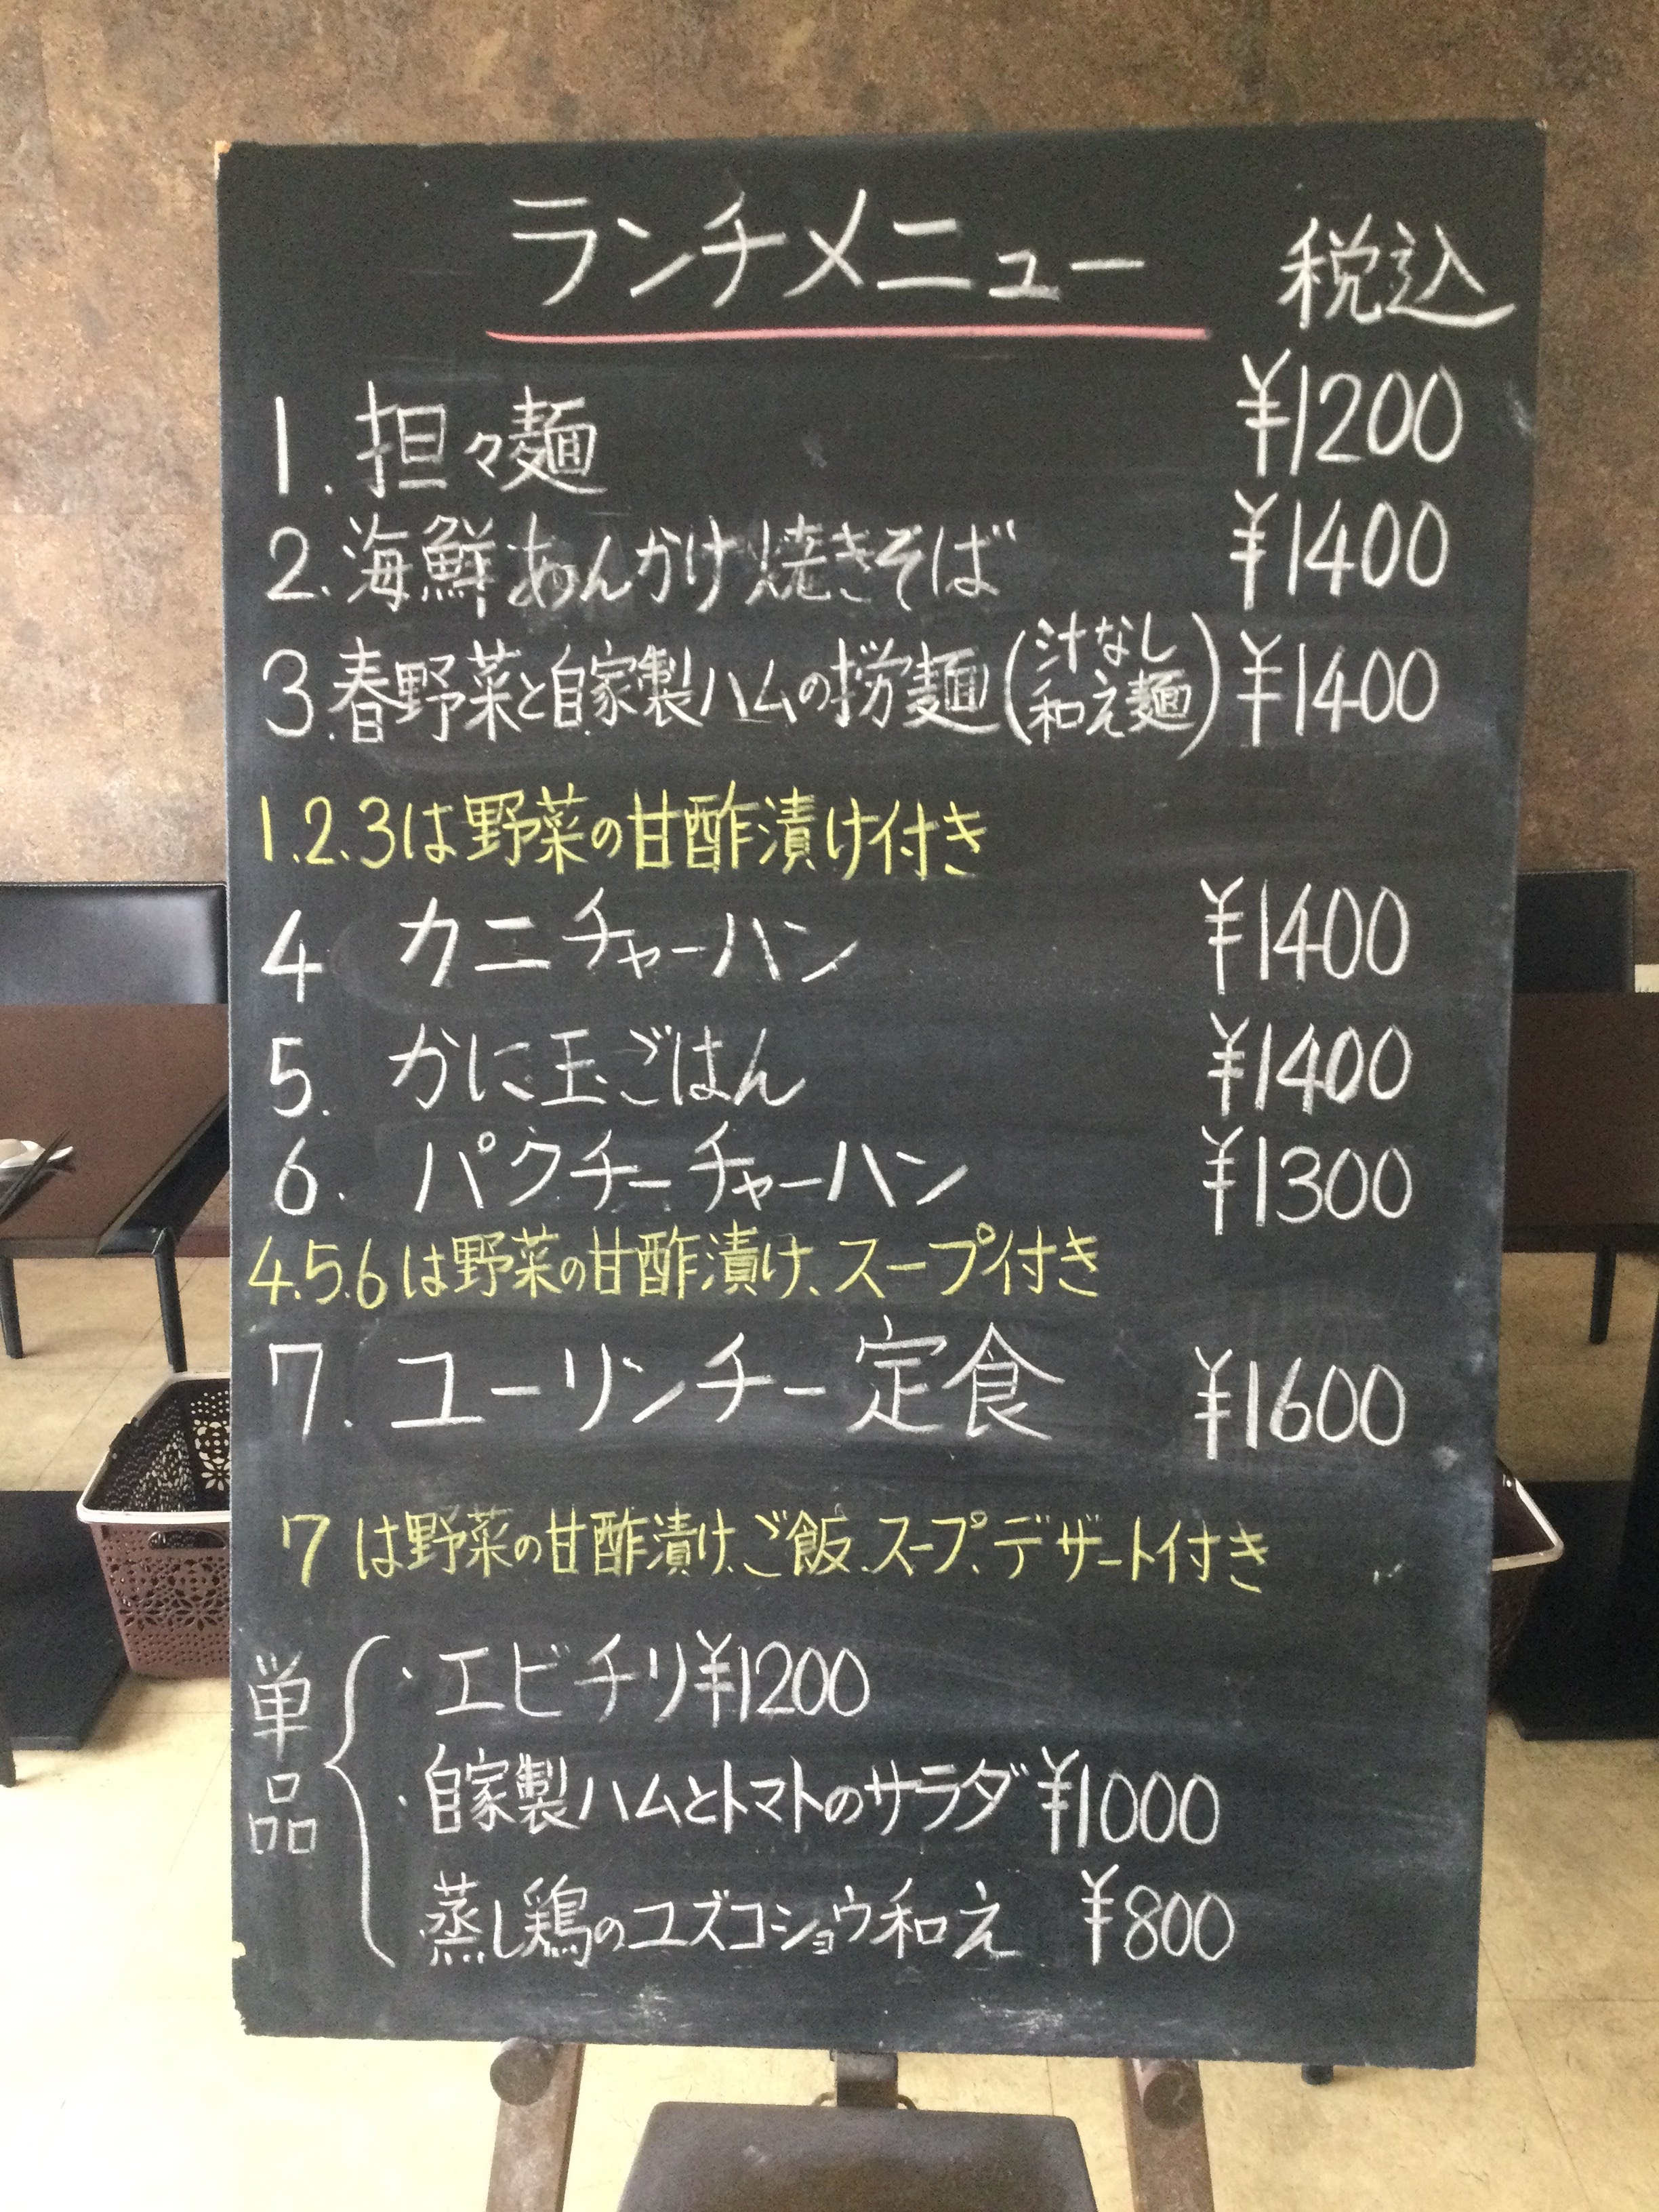 ランチメニュー 税込
1. 担々麺 ¥1200
2. 海鮮あんかけ焼きそば ¥1400
3. 春野菜と自家製ハムの拌麺(汁なし和え麺) ¥1400
1.2.3は野菜の甘酢漬け付き
4 カニチャーハン ¥1400
5. かに玉ごはん ¥1400
6. パクチーチャーハン ¥1300
4.5.6は野菜の甘酢漬け、スープ付き
7. ユーリンチー定食 ¥1600
7は野菜の甘酢漬け、ご飯、スープ、デザート付き
単品
・エビチリ ¥1200
・自家製ハムとトマトのサラダ ¥1000
蒸し鶏のユズコショウ和え ¥800